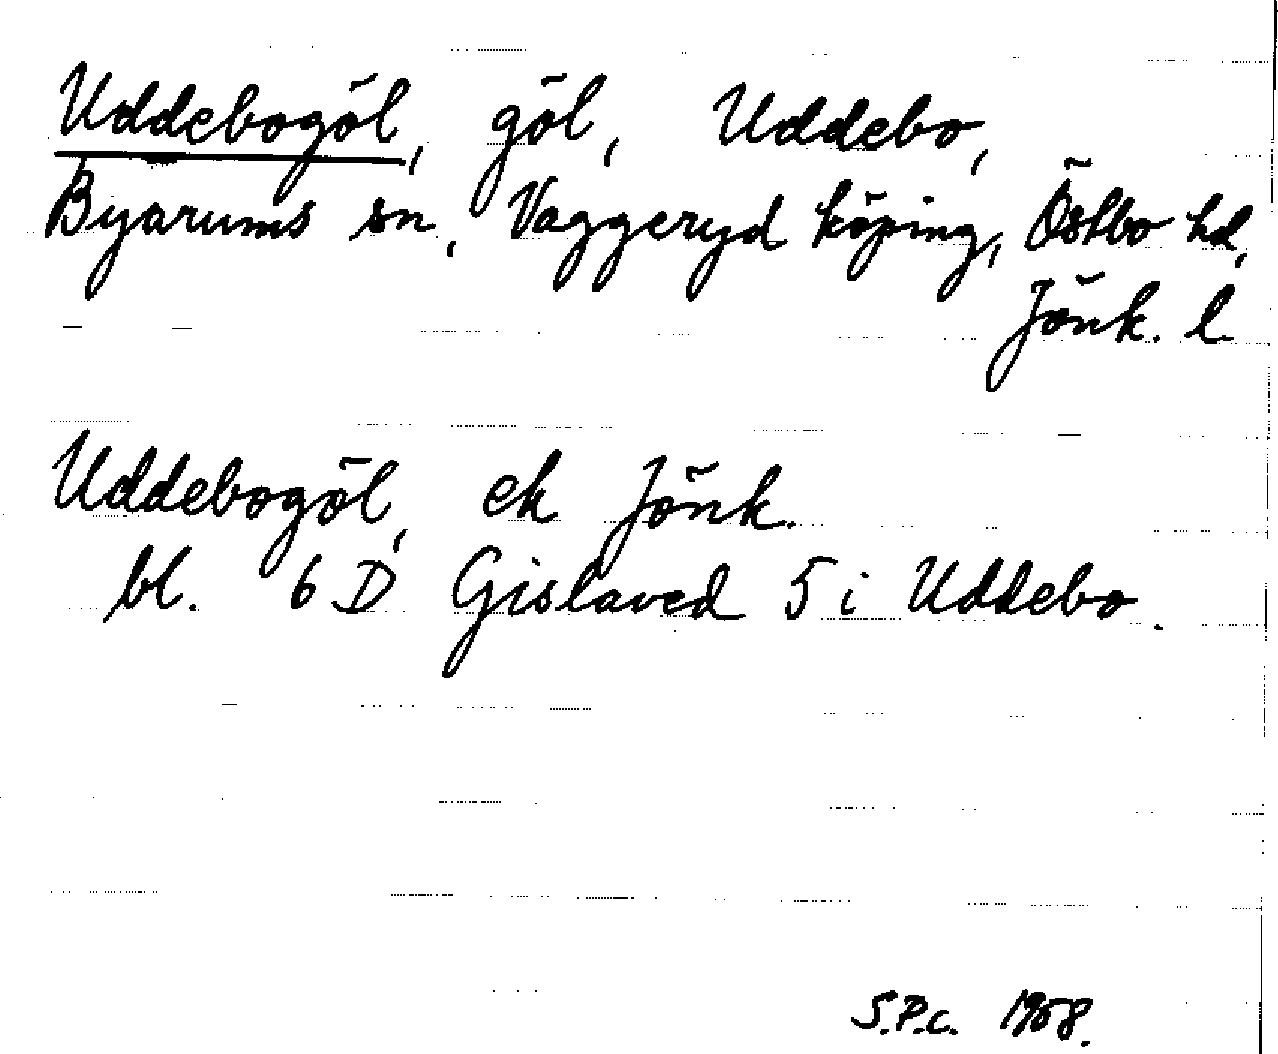 Uddebogöl, göl, Uddebo,
Byarums sn, Vaggeryd köping, Östbo hd,
Jönk. l.
Uddebogöl, ek Jönk.
bl. 6 D Gislaved 5 i Uddebo.
S.P.c. 1958.